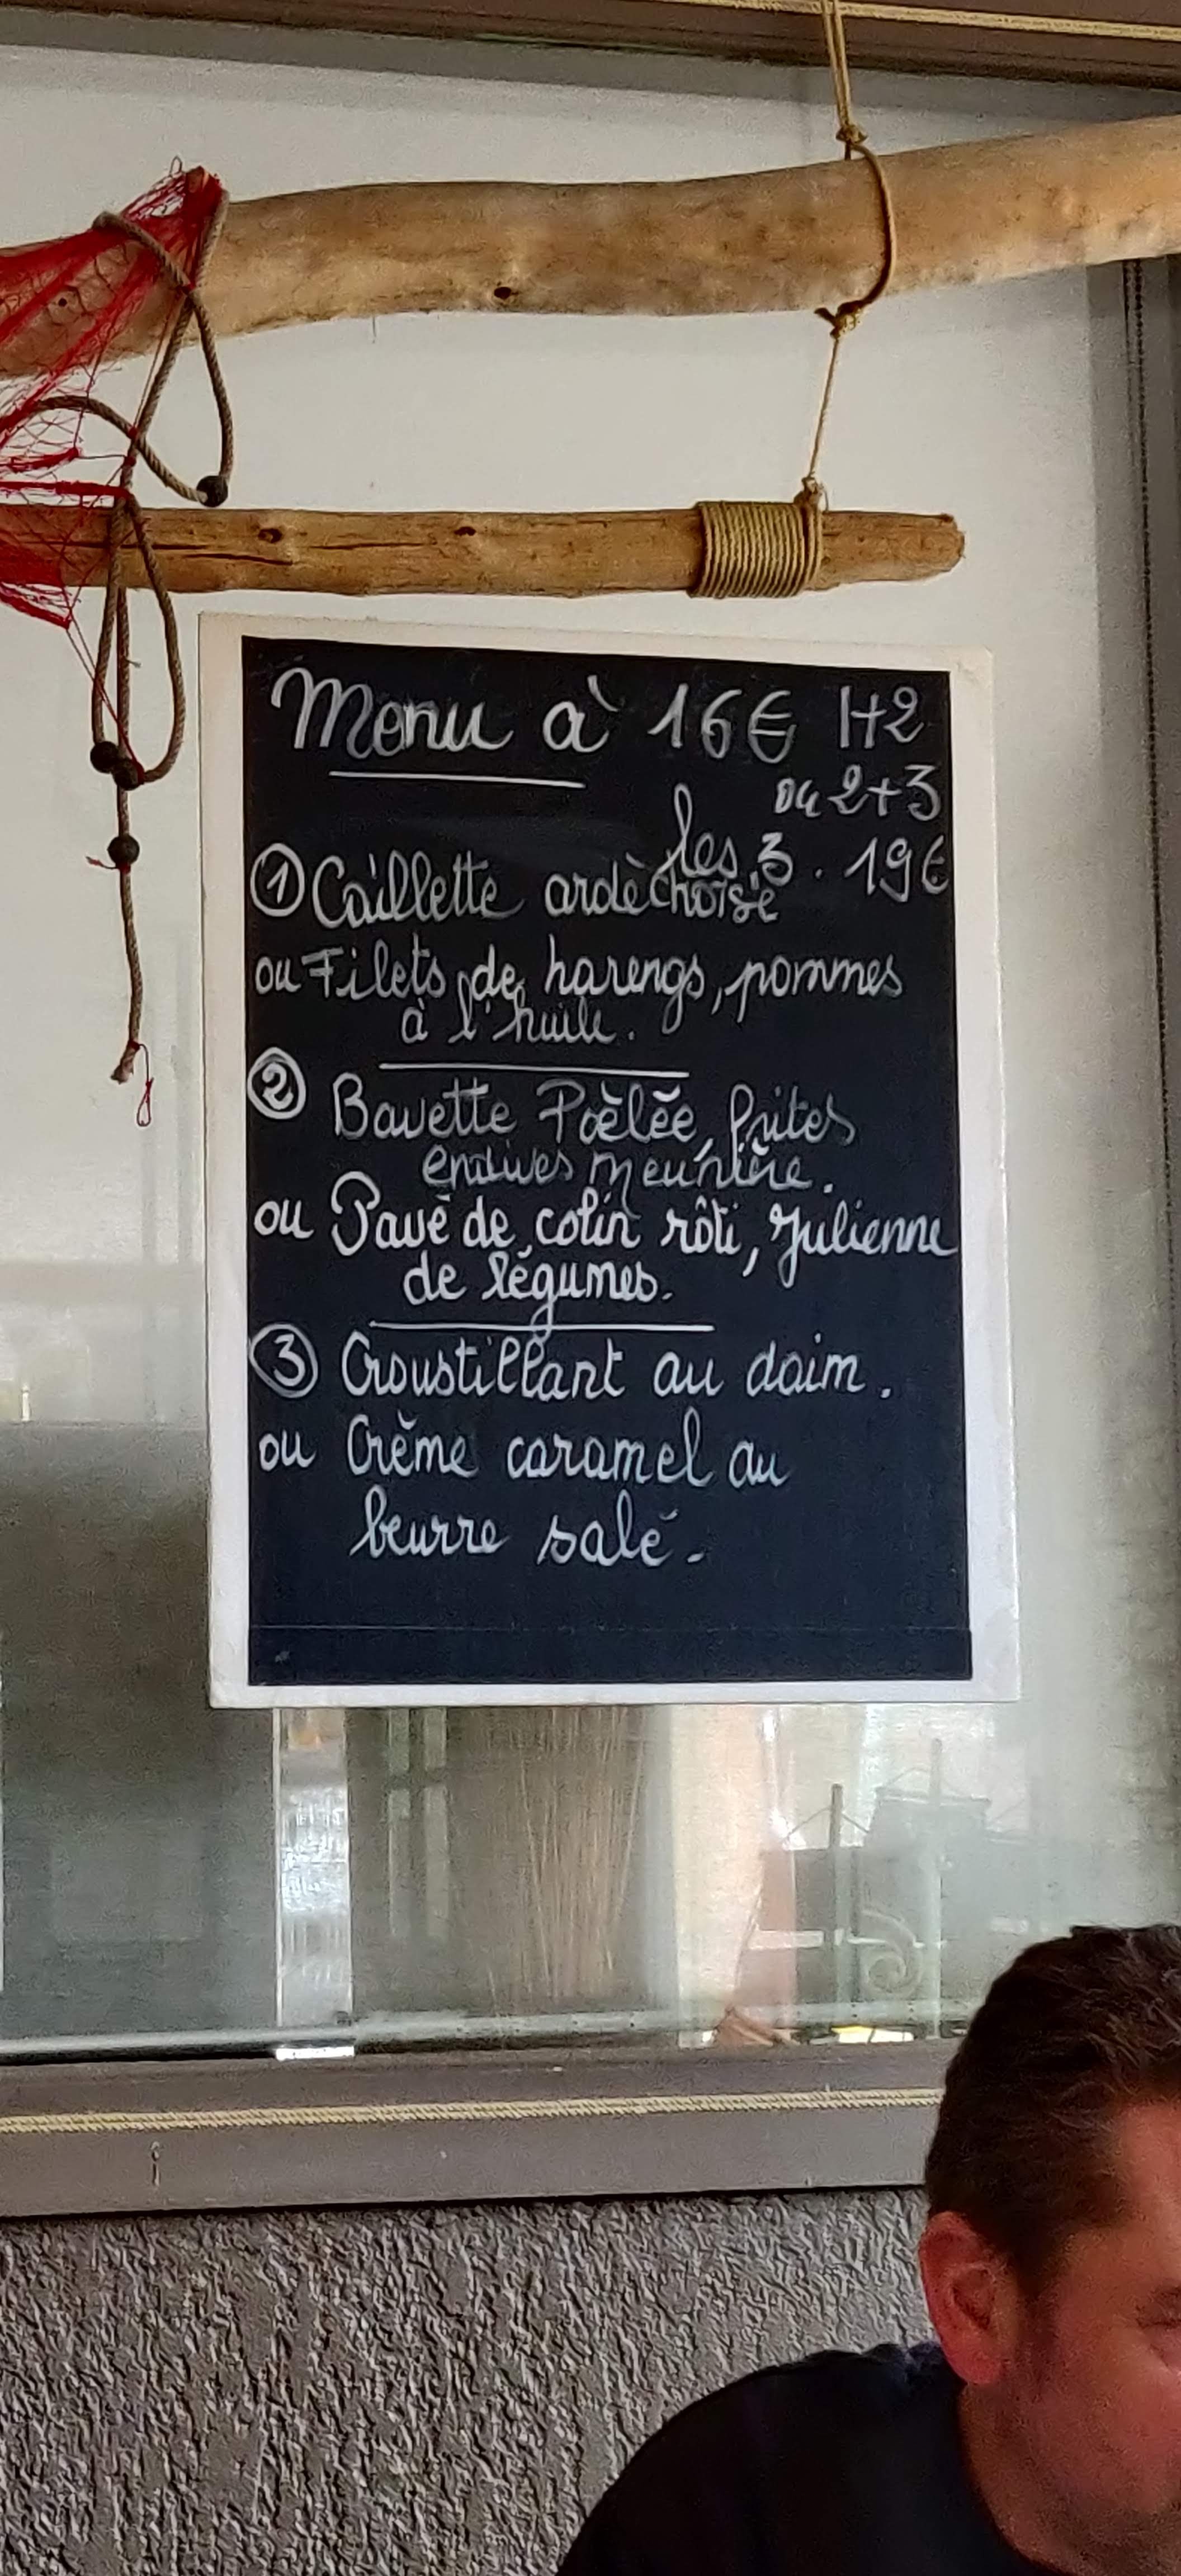 Menu à 16€ 1+2
ou 2+3
les 3. 19€
① Caillette ardèchoise
ou Filets de harengs, pommes
à l'huile.
② Bavette Poêlée, frites
endives meunière.
ou Pavé de colin rôti, Julienne
de légumes.
③ Croustillant au daim.
ou Crème caramel au
beurre salé.